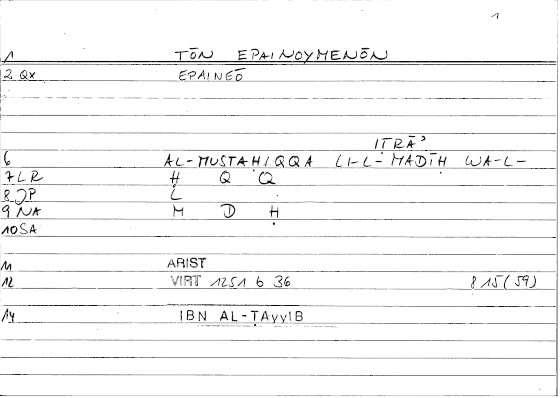 1
1 TŌN EPAINOYMENŌN
2 Qx EPAINEŌ
ITRĀʾ
6 AL-MUSTAḤIQQA LI-L-MADĪḤ WA-L-
7 LR Ḥ Q Q
8 JP L
9 NA M D Ḥ
10 SA
11 ARIST
12 VIRT 1251 b 36 815(59)
14 IBN AL-ṬAyyIB